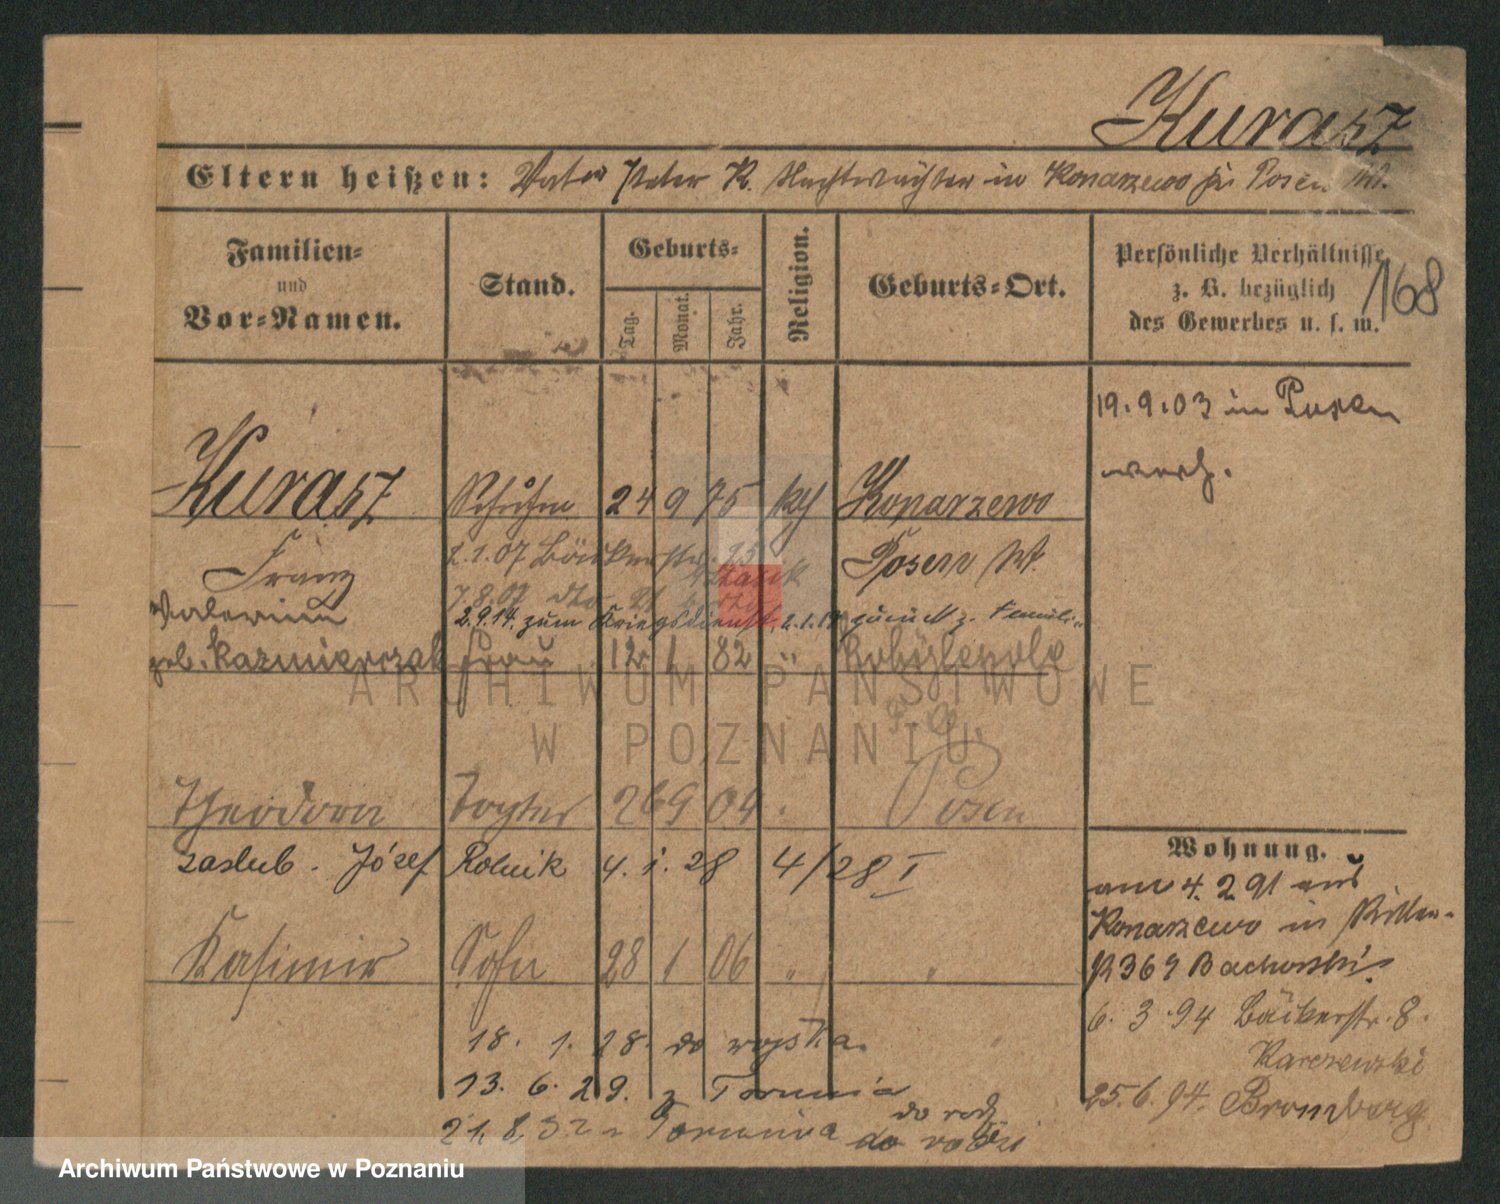 Kurasz
Eltern heißen: Vater Peter K. Nachtwächter in Konarzewo Kr. Posen W.
Familien-
und
Vor-Namen.
Stand.
Geburts-
Tag.
Monat.
Jahr.
Religion.
Geburts-Ort.
Persönliche Verhältnisse
z. B. bezüglich
des Gewerbes u. s. w.
168
19.9.03 in Posen
verh.
Kurasz 24 9 75 kth Konarzewo
Franz Posen W.
2.1.07 Bäckerstr. 25
7.8.07 dto 21
2.9.14. zum Kriegsdienst, zurück z. Famili
geb. Kazmierczak Frau 12 1 82 " Kobylepole
Theodora Tochter 26 9 04 Posen
zaslub. Józef Rolnik 4. 1. 28 4/28 I
Kasimir Sohn 28 1 06 " "
18. 1. 28. do wojska.
13. 6. 29. z Torunia
do rodz
21. 8. 32 Torunia do rodzi
Wohnung.
am 4. 2 91 aus
Konarzewo in Ritter-
Bachorski
6. 3. 94 Bäckerstr. 8.
Karczewski
25. 6. 94. Bromberg
ARCHIWUM PAŃSTWOWE
W POZNANIU
Archiwum Państwowe w Poznaniu